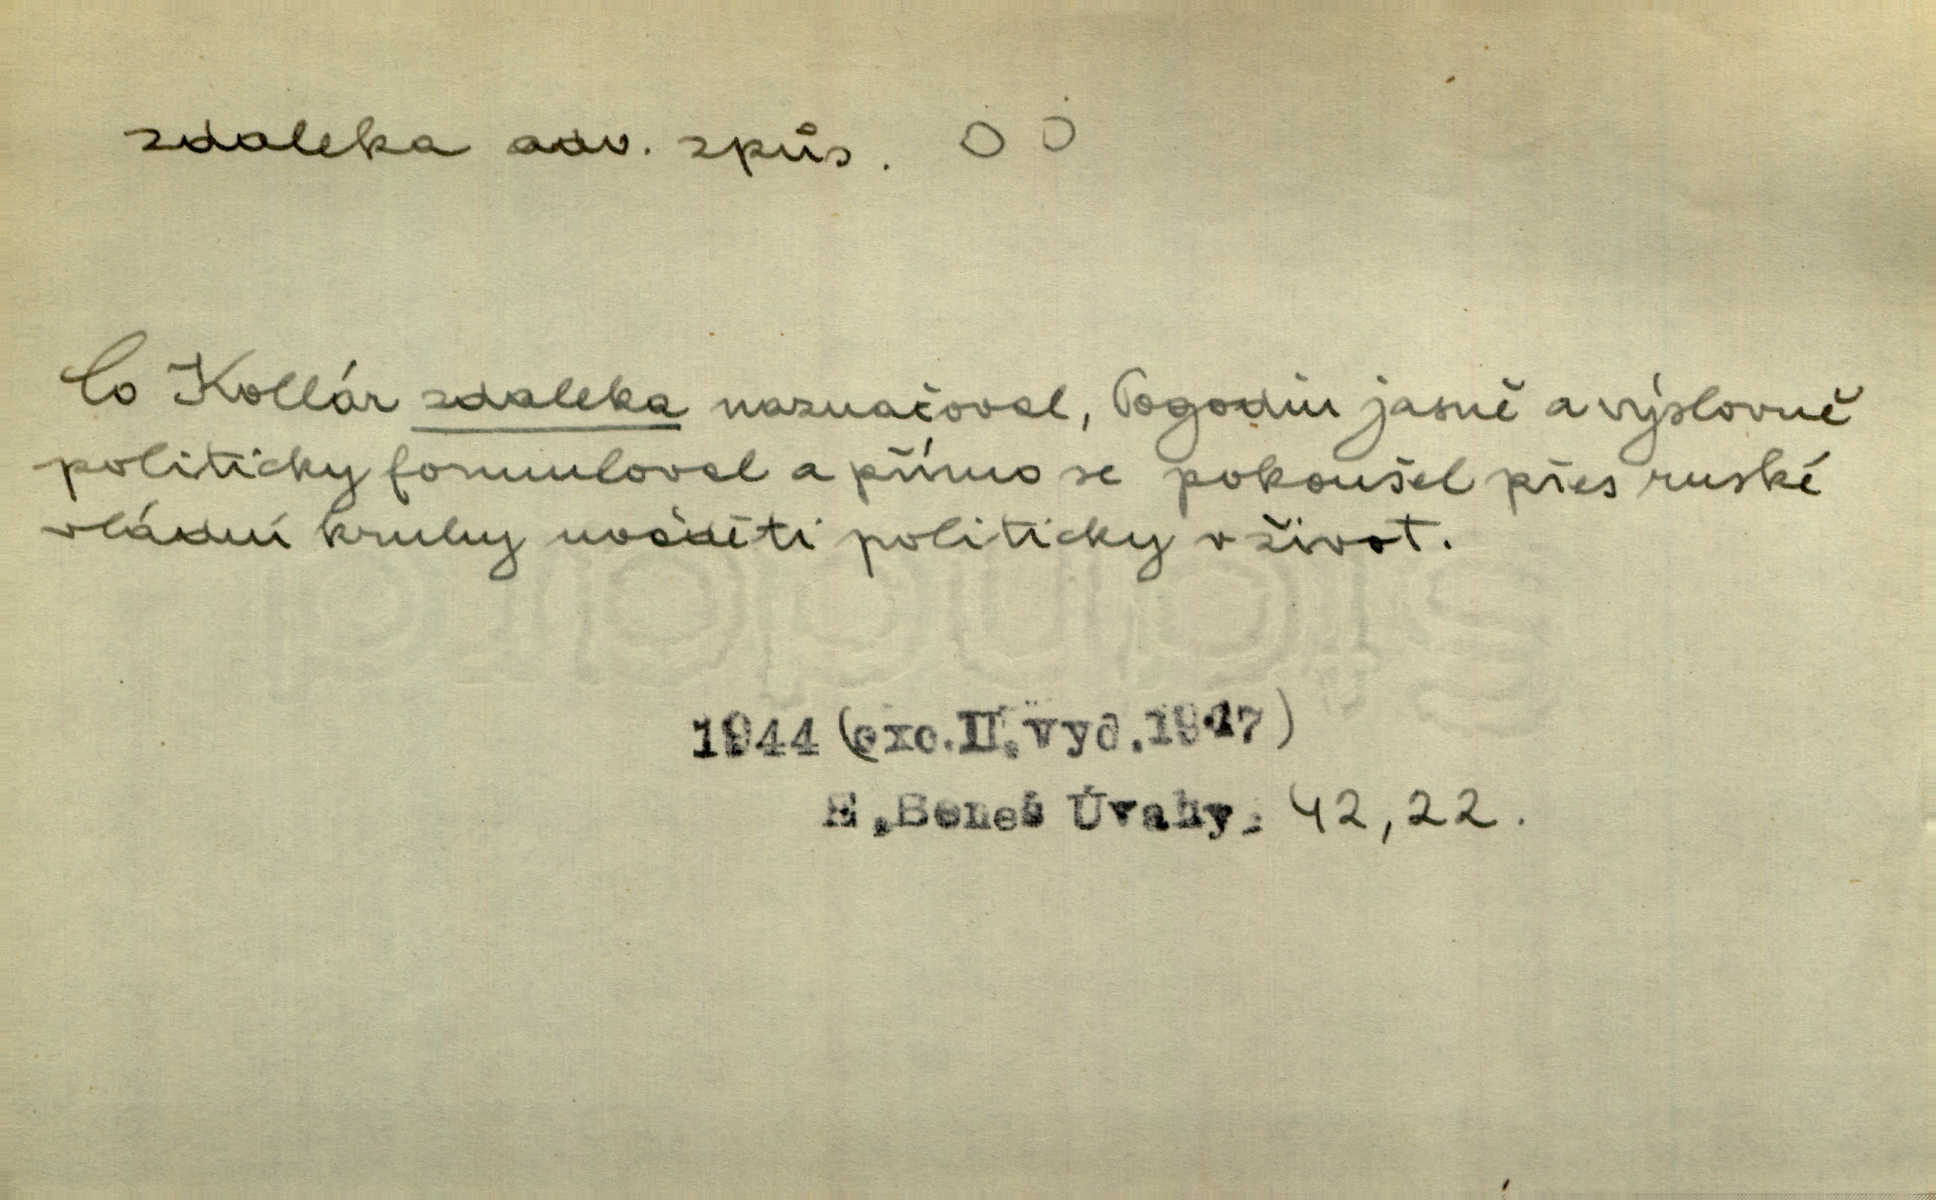 zdaleka adv. způs. O O
Co Kollár zdaleka naznačoval, Pogodin jasně a výslovně
politicky formuloval a přímo se pokoušel přes ruské
vládní kruhy uváděti politicky v život.
1944 (exc. II. vyd. 1947)
E. Beneš Úvahy, 42, 22.